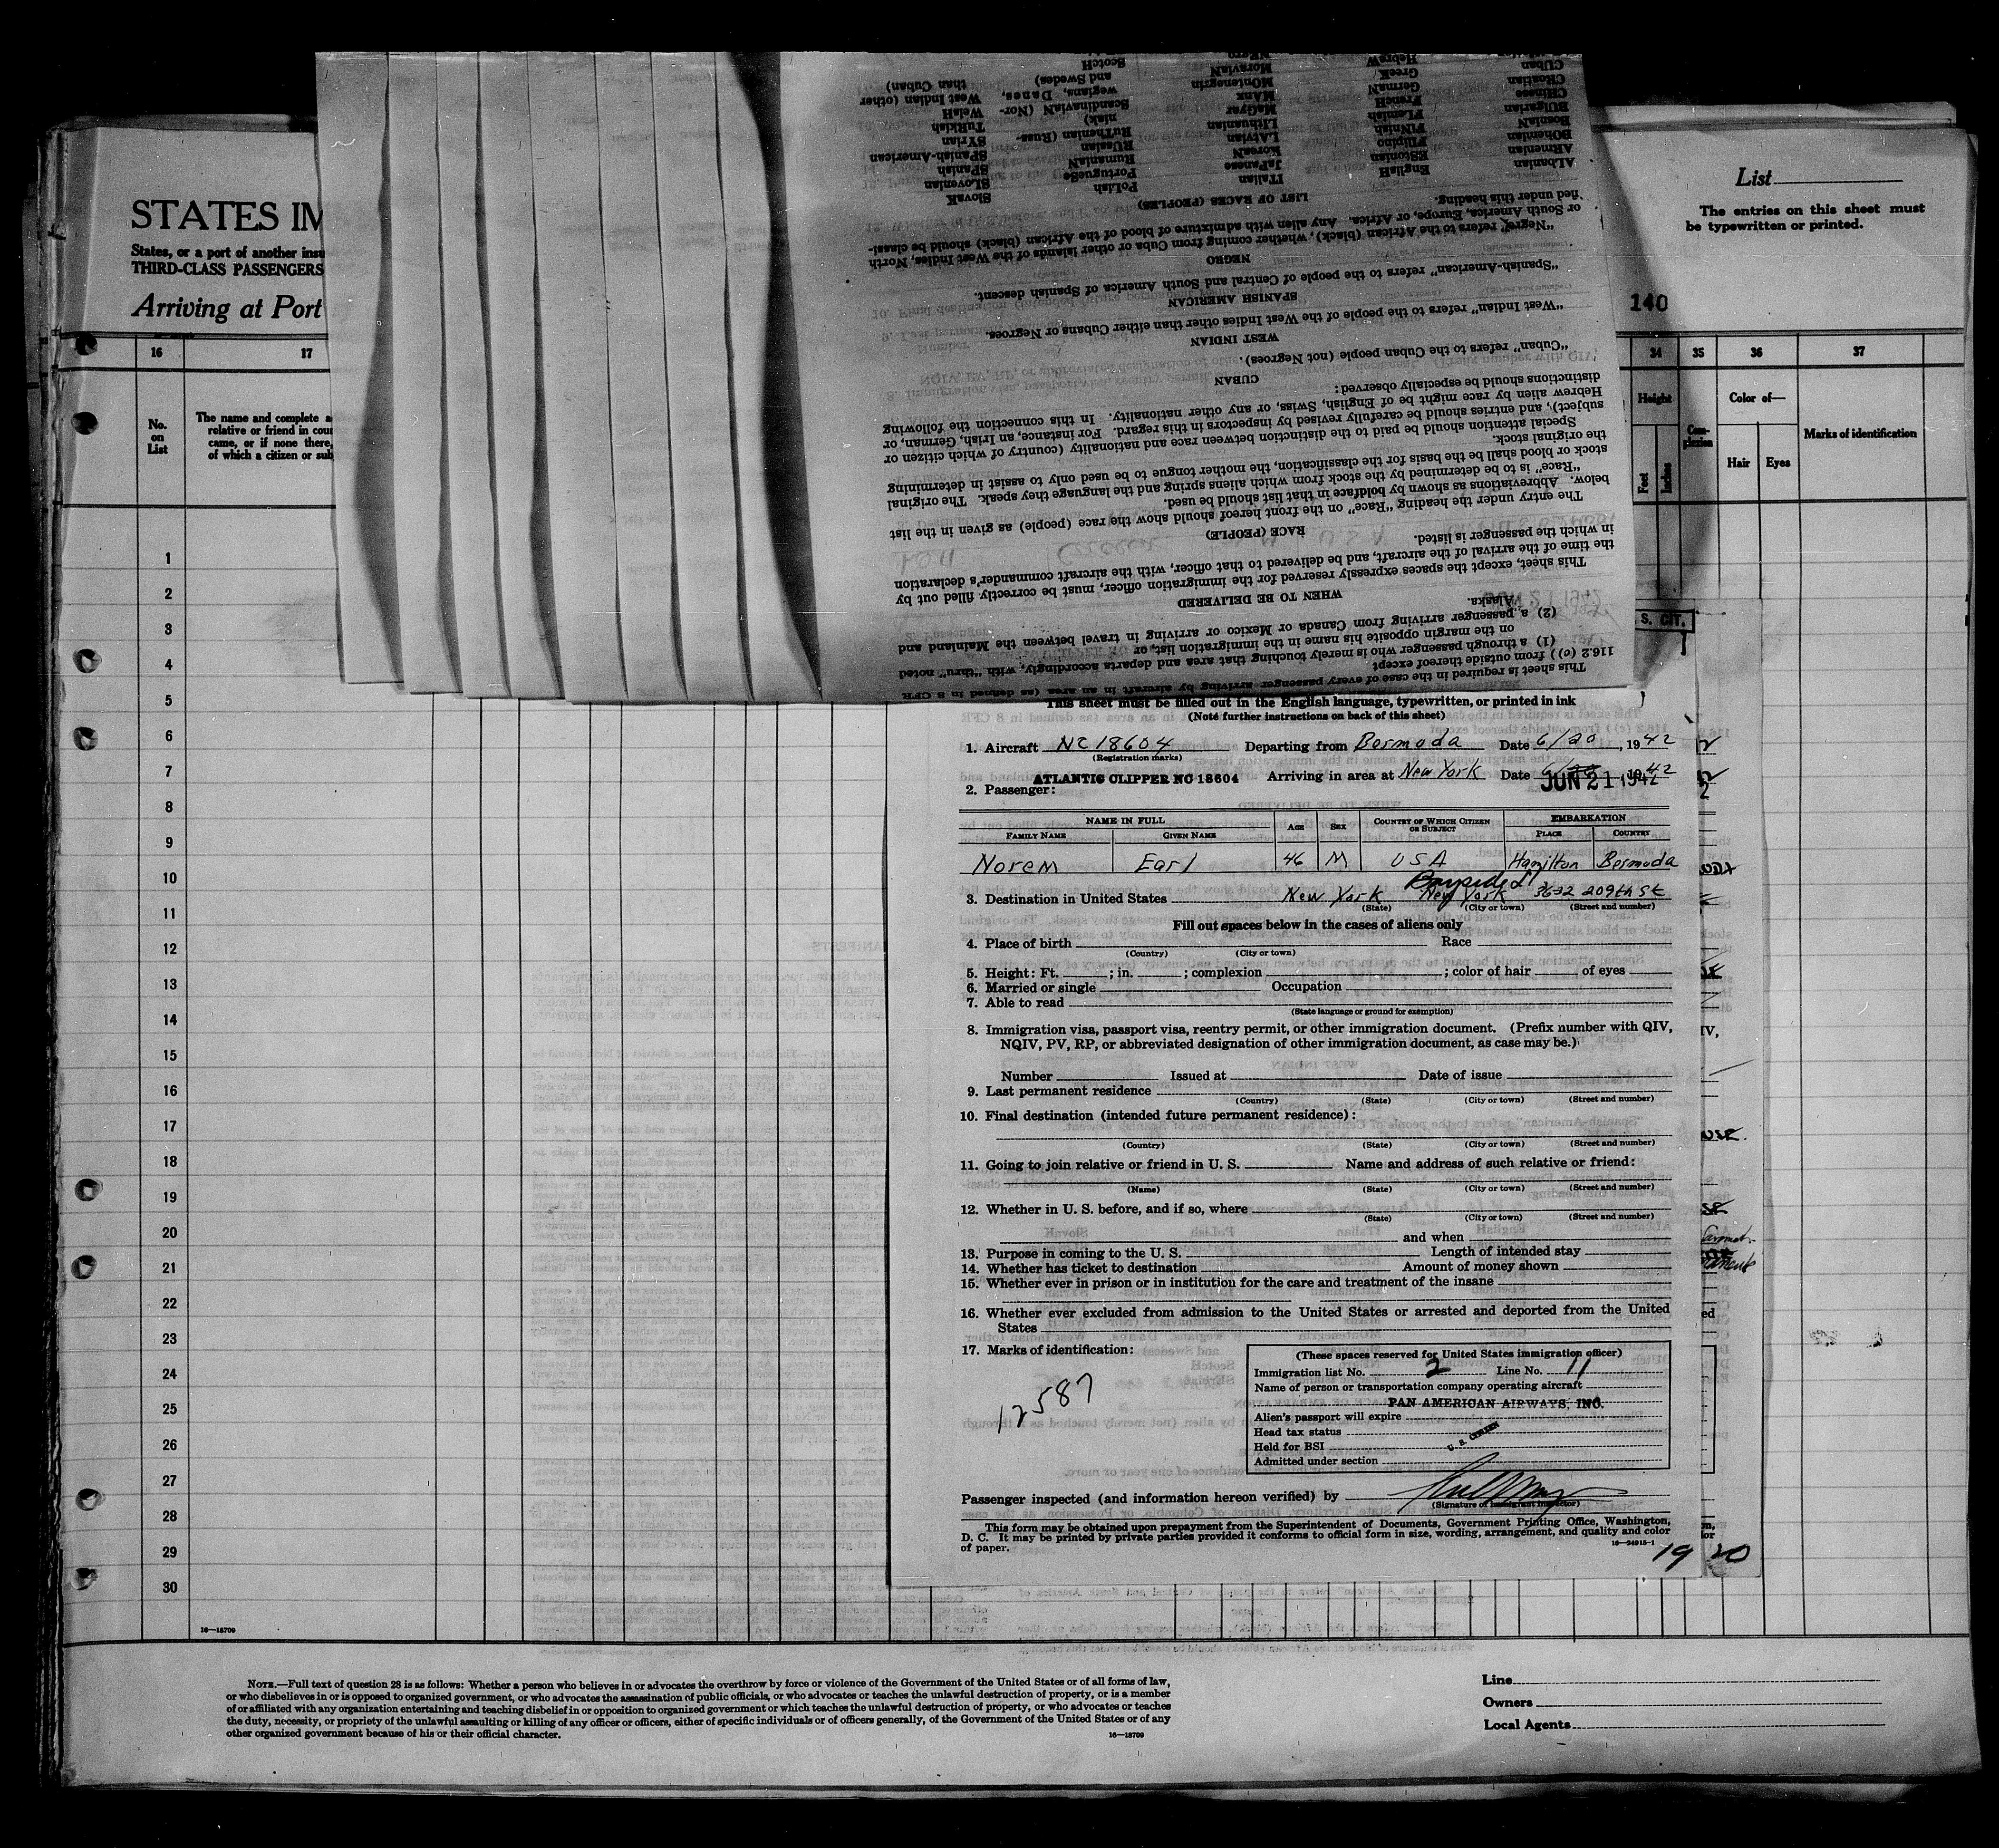 STATES IM
States, or a port of another insu
THIRD-CLASS PASSENGERS
Arriving at Port
List
The entries on this sheet must
be typewritten or printed.
140
16 17
No. on List
The name and complete a
relative or friend in cou
came, or if none there,
of which a citizen or sub
34 35 36 37
Height
Feet Inches
Com-plexion
Color of—
Hair Eyes
Marks of identification
S. CIT.
SlovaK
SLovenian
SPanish
SPanish-American
SYrian
TuRkish
WelsH
West Indian (other
than Cuban)
PoLish
PortugueSe
RumaniaN
RUssian
RuThenian (Russ-
niak)
ScandinaviaN (Nor-
wegians, Danes,
and Swedes)
ScotcH
ITalian
JaPanese
KoreaN
LAtvian
LIthuanian
MaGyar
MAnx
MOntenegrin
MoraviaN
EngLisH
EStonian
FIlipino
FINNish
FLemish
FrencH
GermaN
GreeK
HebreW
ALbanian
ARmenian
BOhemian
BosniaN
BUlgarian
CHinese
CRoatian
CUban
LIST OF RACES (PEOPLES)
fied under this heading.
or South America, Europe, or Africa. Any alien with admixture of blood of the African (black) should be classi-
"Negro" refers to the African (black), whether coming from Cuba or other islands of the West Indies, North
NEGRO
"Spanish-American" refers to the people of Central and South America of Spanish descent.
SPANISH AMERICAN
"West Indian" refers to the people of the West Indies other than either Cubans or Negroes.
WEST INDIAN
"Cuban" refers to the Cuban people (not Negroes).
CUBAN
distinctions should be especially observed:
Hebrew alien by race might be of English, Swiss, or any other nationality. In this connection the following
subject), and entries should be carefully revised by inspectors in this regard. For instance, an Irish, German, or
Special attention should be paid to the distinction between race and nationality (country of which citizen or
the original stock.
stock or blood shall be the basis for the classification, the mother tongue to be used only to assist in determining
"Race" is to be determined by the stock from which aliens spring and the language they speak. The original
below. Abbreviations as shown by boldface in that list should be used.
The entry under the heading "Race" on the front hereof should show the race (people) as given in the list
RACE (PEOPLE)
in which the passenger is listed.
the time of the arrival of the aircraft, and be delivered to that officer, with the aircraft commander's declaration
This sheet, except the spaces expressly reserved for the immigration officer, must be correctly filled out by
WHEN TO BE DELIVERED
Alaska.
(2) a passenger arriving from Canada or Mexico or arriving in travel between the Mainland and
on the margin opposite his name in the immigration list, or
(1) a through passenger who is merely touching that area and departs accordingly, with "thru" noted
116.2 (c)) from outside thereof except
This sheet is required in the case of every passenger arriving by aircraft in an area (as defined in 8 CFR
This sheet must be filled out in the English language, typewritten, or printed in ink
(Note further instructions on back of this sheet)
1. Aircraft NC 18604 Departing from Bermuda Date 6/20, 1942
(Registration marks)
ATLANTIC CLIPPER NC 18604 Arriving in area at New York Date 6/20 1942
JUN 21 1942
2. Passenger:
NAME IN FULL AGE SEX COUNTRY OF WHICH CITIZEN OR SUBJECT EMBARKATION
FAMILY NAME GIVEN NAME PLACE COUNTRY
Norem Earl 46 M USA Hamilton Bermuda
Bayside LI
3. Destination in United States New York New York 3632 209th St
(State) (City or town) (Street and number)
Fill out spaces below in the cases of aliens only
4. Place of birth Race
(Country) (City or town)
5. Height: Ft. ; in. ; complexion ; color of hair of eyes
6. Married or single Occupation
7. Able to read
(State language or ground for exemption)
8. Immigration visa, passport visa, reentry permit, or other immigration document. (Prefix number with QIV,
NQIV, PV, RP, or abbreviated designation of other immigration document, as case may be.)
Number Issued at Date of issue
9. Last permanent residence
(Country) (State) (City or town) (Street and number)
10. Final destination (intended future permanent residence):
(Country) (State) (City or town) (Street and number)
11. Going to join relative or friend in U. S. Name and address of such relative or friend:
(Name) (State) (City or town) (Street and number)
12. Whether in U. S. before, and if so, where
(State) (City or town) (Street and number)
and when
13. Purpose in coming to the U. S. Length of intended stay
14. Whether has ticket to destination Amount of money shown
15. Whether ever in prison or in institution for the care and treatment of the insane
16. Whether ever excluded from admission to the United States or arrested and deported from the United
States
17. Marks of identification:
12587
(These spaces reserved for United States immigration officer)
Immigration list No. 2 Line No. 11
Name of person or transportation company operating aircraft
PAN AMERICAN AIRWAYS, INC.
Alien's passport will expire
Head tax status
Held for BSI
U. S. CITIZEN
Admitted under section
Passenger inspected (and information hereon verified) by
(Signature of immigrant inspector)
This form may be obtained upon prepayment from the Superintendent of Documents, Government Printing Office, Washington,
D. C. It may be printed by private parties provided it conforms to official form in size, wording, arrangement, and quality and color
of paper.
16—24915-1
19 20
1
2
3
4
5
6
7
8
9
10
11
12
13
14
15
16
17
18
19
20
21
22
23
24
25
26
27
28
29
30
16—18709
NOTE.—Full text of question 28 is as follows: Whether a person who believes in or advocates the overthrow by force or violence of the Government of the United States or of all forms of law,
or who disbelieves in or is opposed to organized government, or who advocates the assassination of public officials, or who advocates or teaches the unlawful destruction of property, or is a member
of or affiliated with any organization entertaining and teaching disbelief in or opposition to organized government or which teaches the unlawful destruction of property, or who advocates or teaches
the duty, necessity, or propriety of the unlawful assaulting or killing of any officer or officers, either of specific individuals or of officers generally, of the Government of the United States or of any
other organized government because of his or their official character.
16—18709
Line
Owners
Local Agents